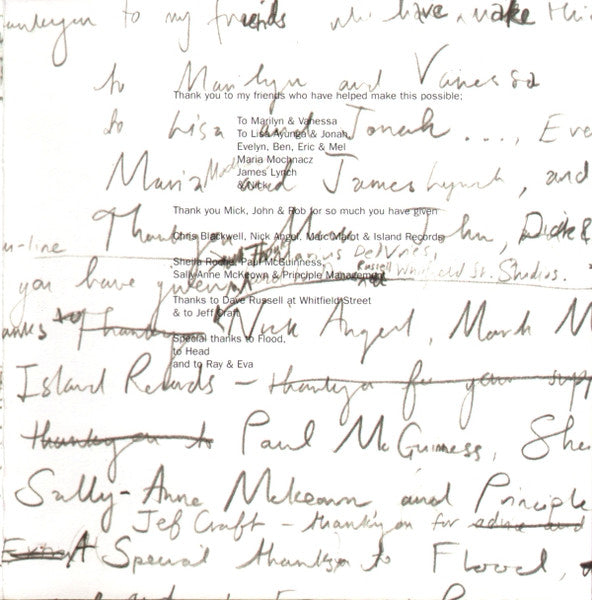 thankyou to my friends who have make thi
to Marilyn and Vanessa
Thank you to my friends who have helped make this possible;
To Marilyn & Vanessa
to Lisa and Jonah ...., Eve
To Lisa Ayunga & Jonah,
Evelyn, Ben, Eric & Mel
Maria Mochnacz
Maria and James Lynch, and
James Lynch
& Nick
Thank you Mick, John & Rob for so much you have given
Thankyou John, Dick &
Chris Blackwell, Nick Angel, Marc Marot & Island Records
n-line
Darius DeVries,
Sheila Roche, Paul McGuinness,
Russell Whitfield St. Studios.
Sally-Anne McKeown & Principle Management
you have given
Thanks to Dave Russell at Whitfield Street
& to Jeff Craft
anks to Thankyou Nick Angel, Mark M
Special thanks to Flood,
to Head
and to Ray & Eva
Island Records – thankyou for your supp
thankyou to Paul McGuiness, She
Sally-Anne Mckeown and Principle
Jef Craft – thankyou for advice and
A Special thankyou to Flood,